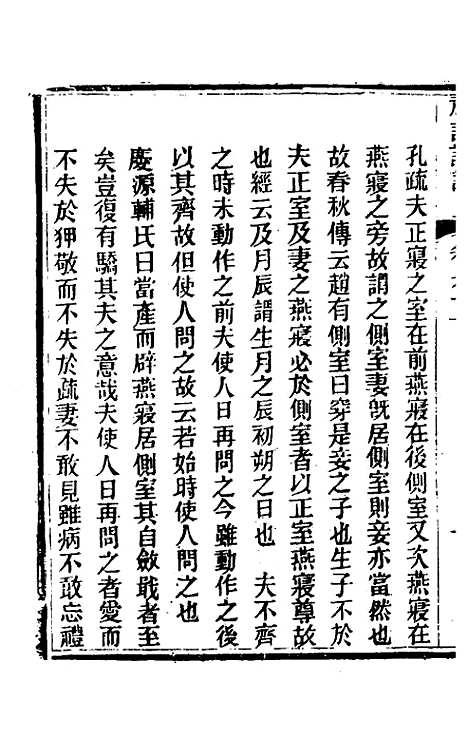 孔疏夫正寢之室在前燕寢在後側室又次燕寢在
燕寢之旁故謂之側室妻旣居側室則妾亦當然也
故春秋傳云趙有側室曰穿是妾之子也生子不於
夫正室及妻之燕寢必於側室者以正室燕寢尊故
也經云及月辰謂生月之辰初朔之日也　夫不齊
之時未動作之前夫使人日再問之今雖動作之後
以其齊故但使人問之故云若始時使人問之也
慶源輔氏曰當產而辟燕寢居側室其自斂戢者至
矣豈復有驕其夫之意哉夫使人日再問之者愛而
不失於狎敬而不失於疏妻不敢見雖病不敢忘禮